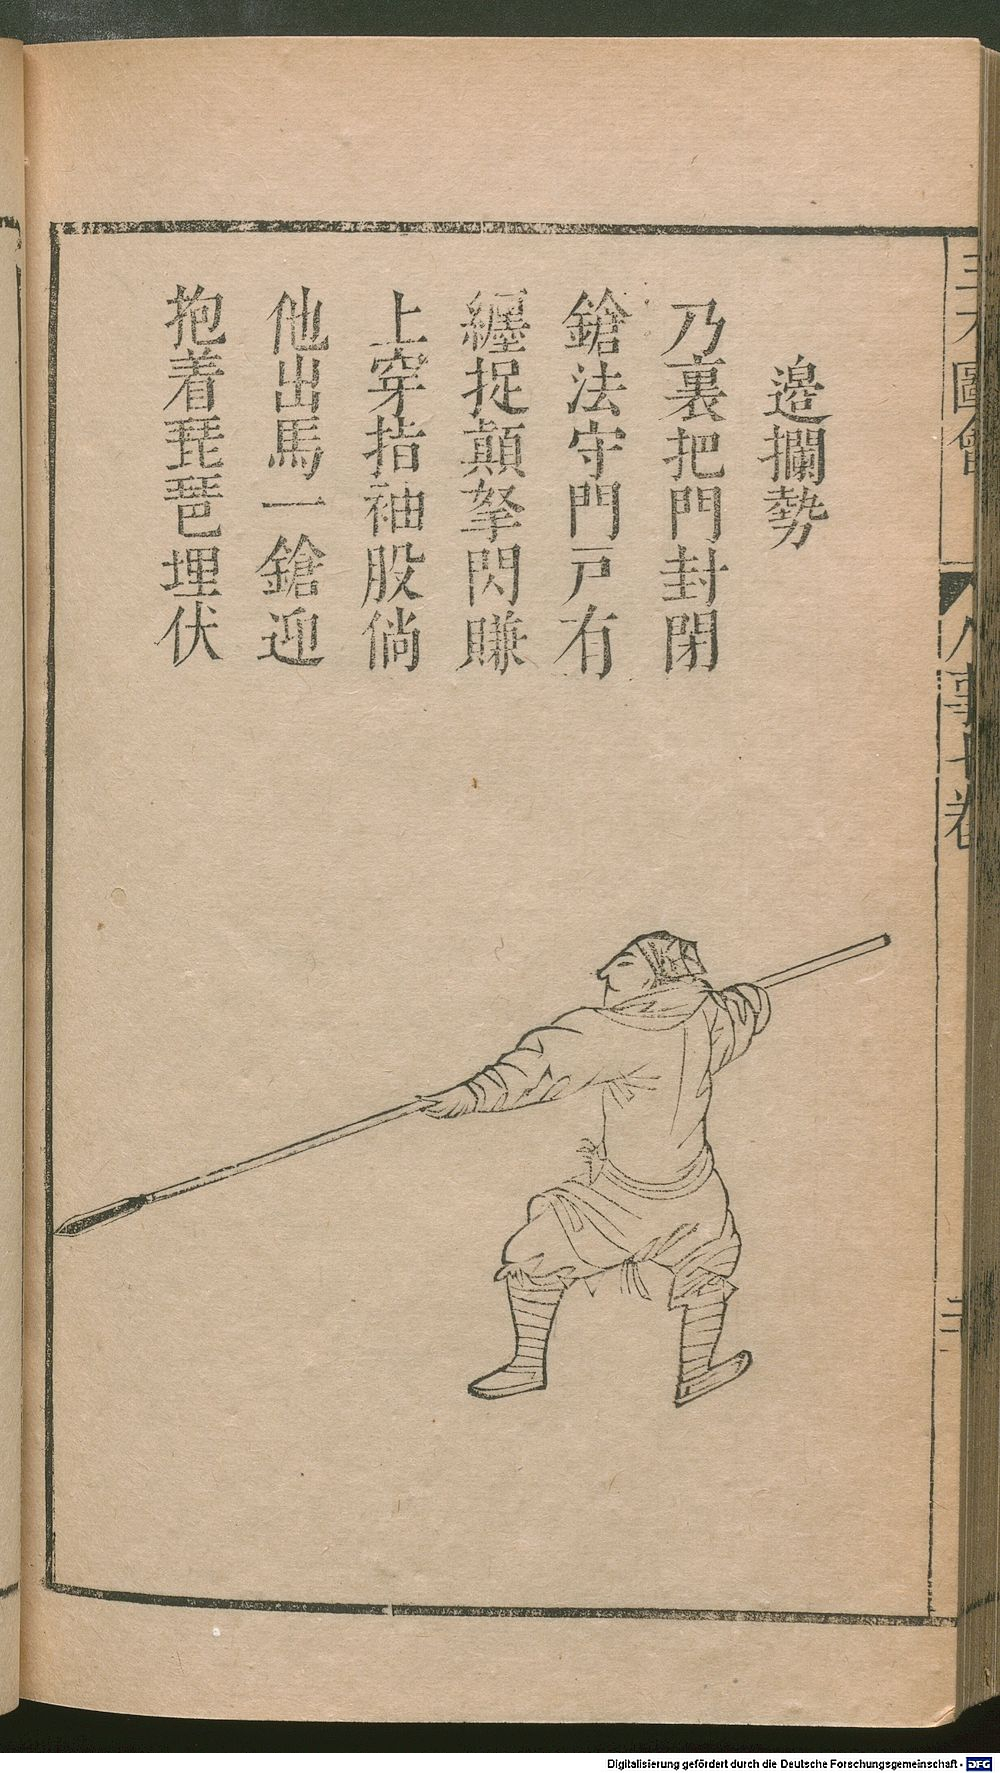 邉攔勢
乃裏把門封閉
鎗法守門戸有
纒捉顛拏閃賺
上穿指袖股倘
他出馬一鎗迎
抱着琵琶埋伏
Digitalisierung gefördert durch die Deutsche Forschungsgemeinschaft - DFG